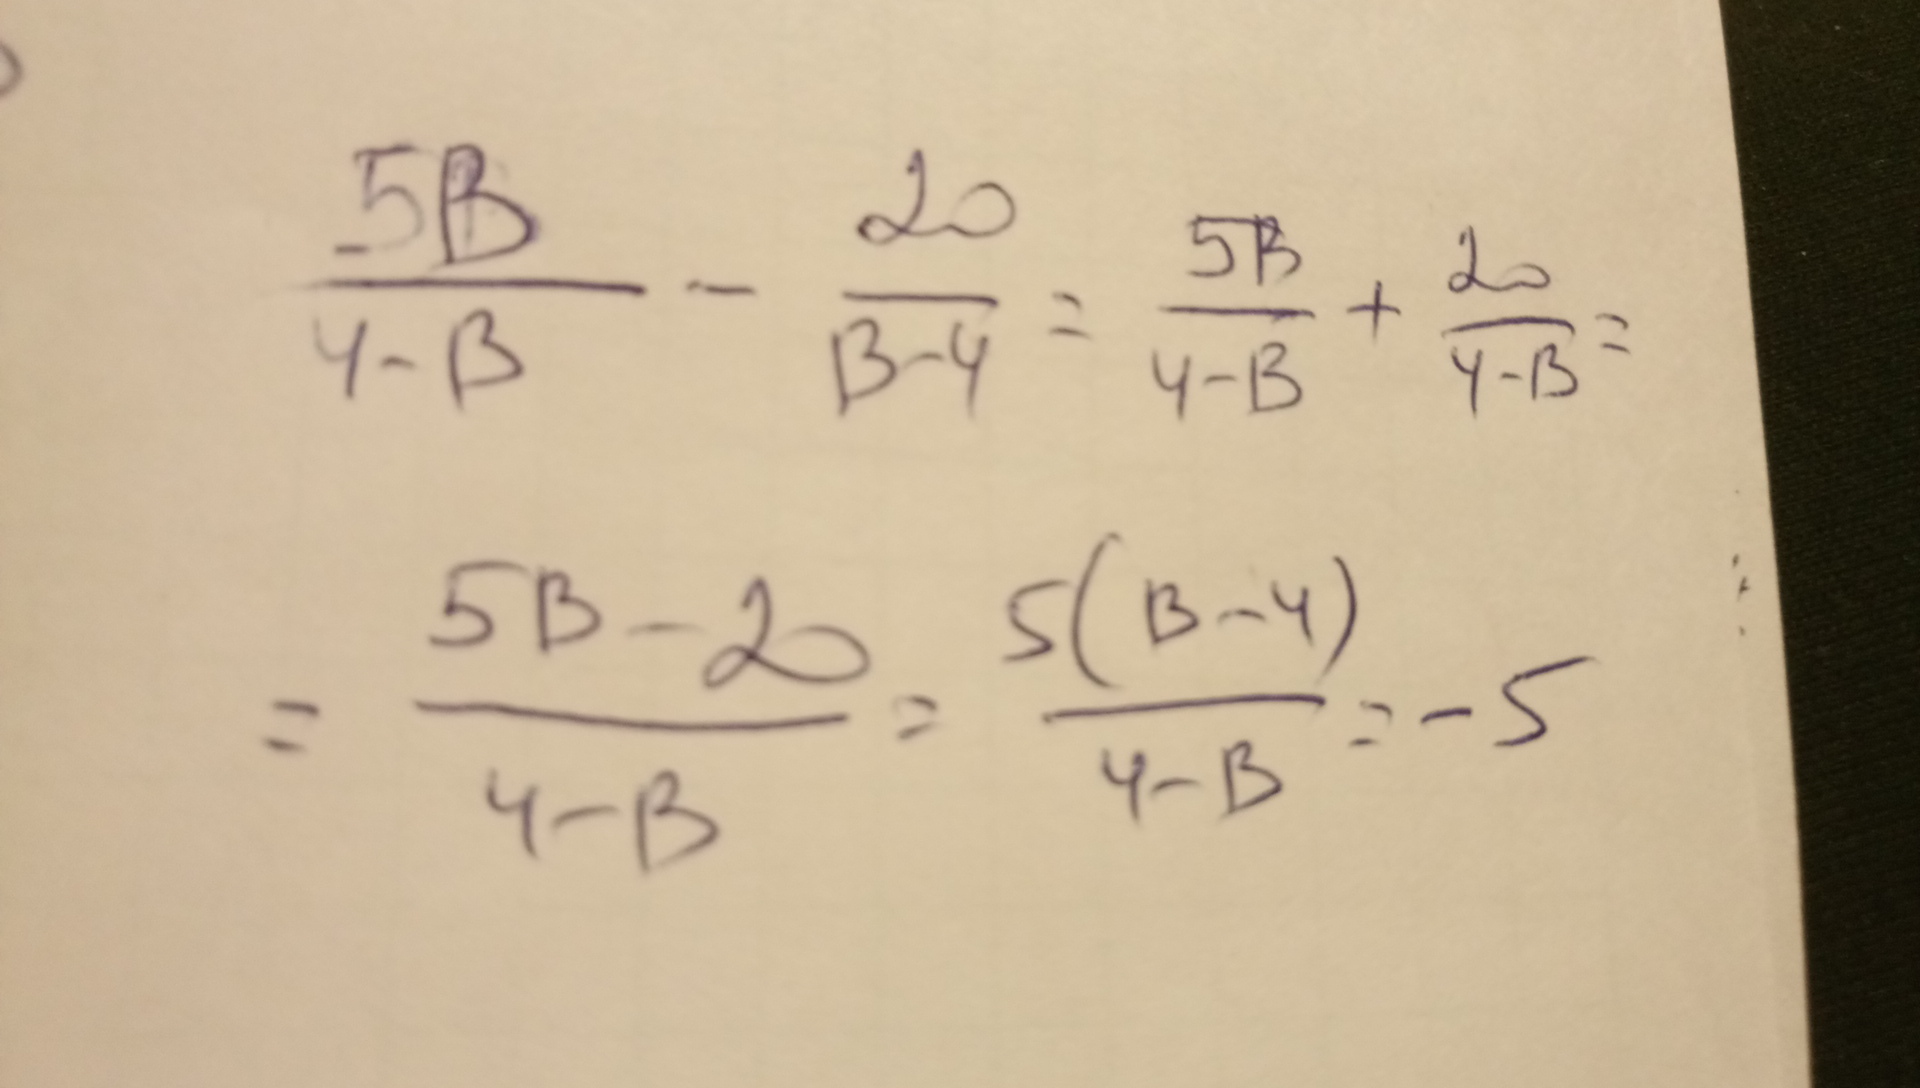 5B/(4-B) - 20/(B-4) = 5B/(4-B) + 20/(4-B) =
= (5B-20)/(4-B) = 5(B-4)/(4-B) = -5